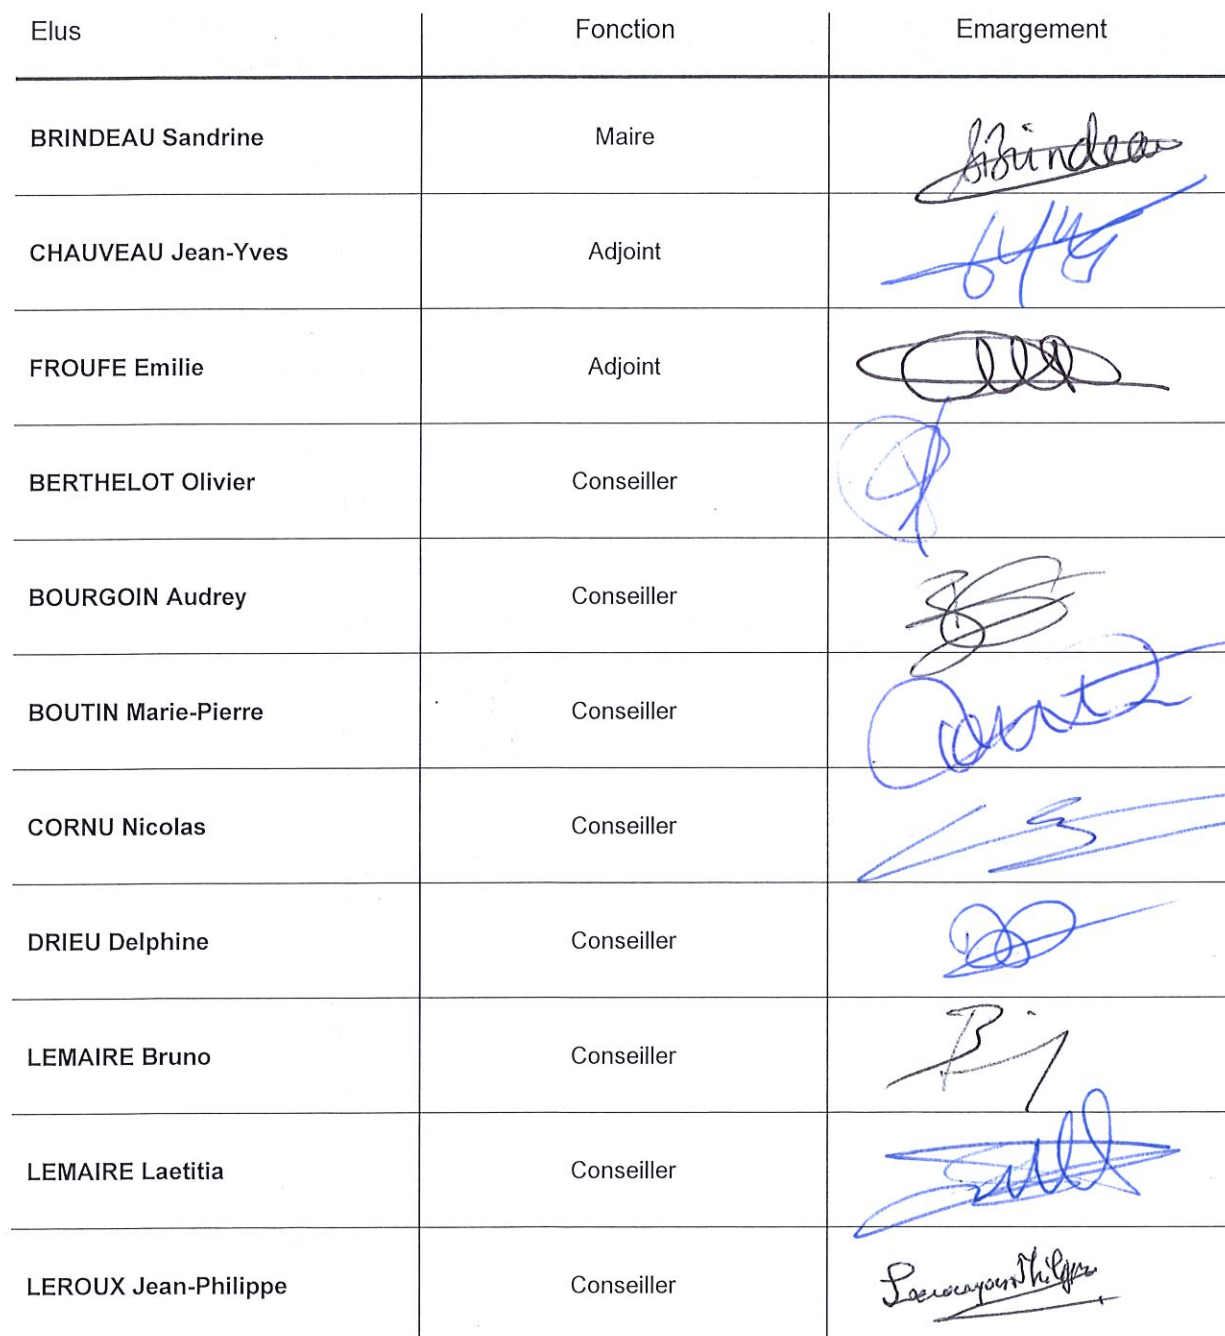 Elus Fonction Emargement
BRINDEAU Sandrine Maire SBrindeau
CHAUVEAU Jean-Yves Adjoint
FROUFE Emilie Adjoint
BERTHELOT Olivier Conseiller
BOURGOIN Audrey Conseiller
BOUTIN Marie-Pierre Conseiller
CORNU Nicolas Conseiller
DRIEU Delphine Conseiller
LEMAIRE Bruno Conseiller
LEMAIRE Laetitia Conseiller
LEROUX Jean-Philippe Conseiller